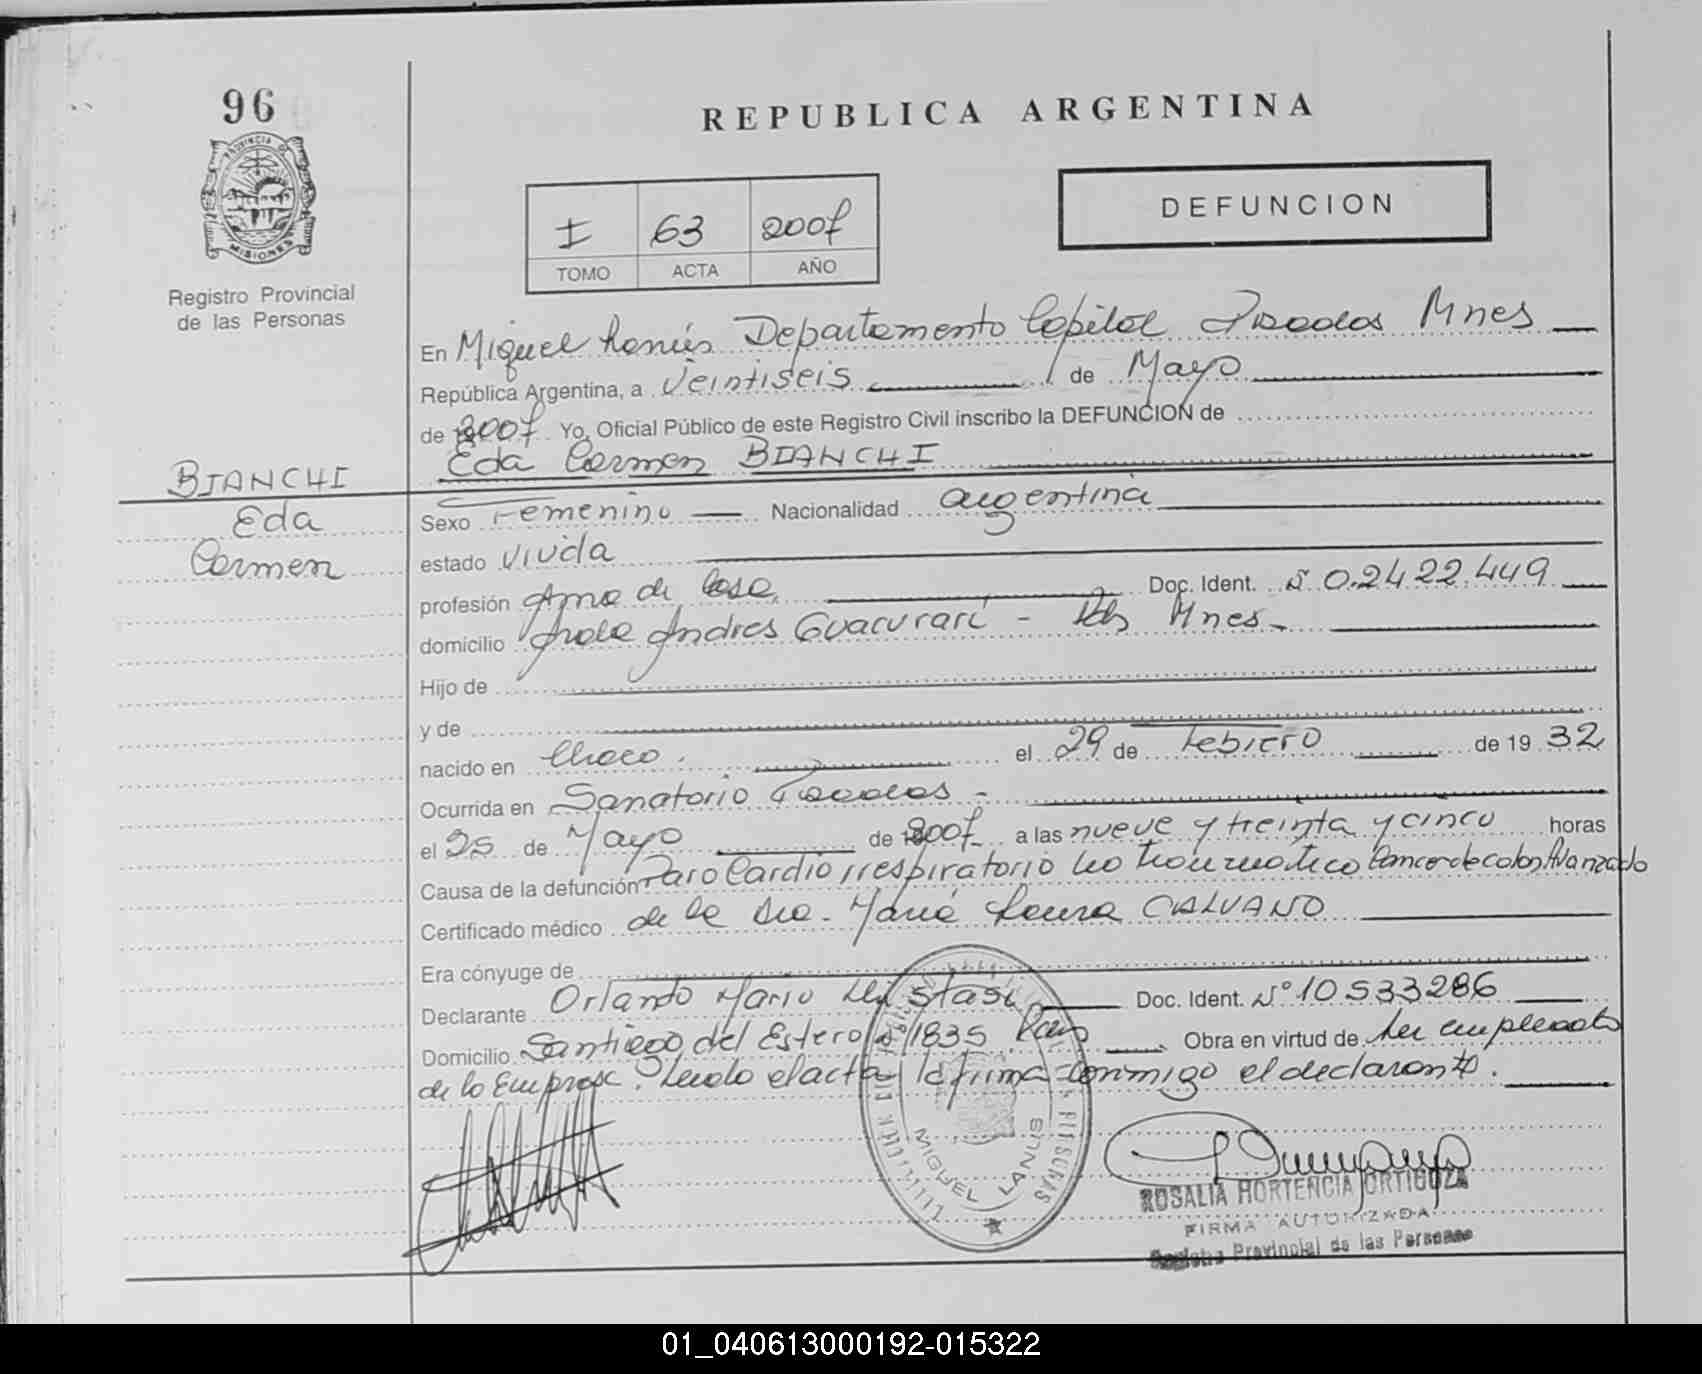 96
REPUBLICA ARGENTINA
PROVINCIA DE
MISIONES
Registro Provincial
de las Personas
I 63 2007
TOMO ACTA AÑO
DEFUNCION
En Miguel Lanús Departamento Capital Posadas Mnes
República Argentina, a Veintiseis de Mayo
de 2007 Yo, Oficial Público de este Registro Civil inscribo la DEFUNCION de
Eda Carmen BIANCHI
BIANCHI
Eda
Carmen
Sexo Femenino Nacionalidad argentina
estado Viuda
profesión Ama de Casa Doc. Ident. Nº 0.2422.449
domicilio Avda Andres Guacurarí - Pdas Mnes -
Hijo de
y de
nacido en Chaco el 29 de Febrero de 19 32
Ocurrida en Sanatorio Posadas -
el 25 de Mayo de 2007 a las nueve y treinta y cinco horas
Causa de la defunción Paro Cardio rrespiratorio No traumatico Cancer de colon Avanzado
Certificado médico de la Dra. María Laura CALVANO
Era cónyuge de
Declarante Orlando Mario Doc. Ident. Nº 10533286
Domicilio Santiago del Estero 1835 Obra en virtud de Ser empleado
de la Empresa. Leida el acta, la firma conmigo el declarante.
MIGUEL LANUS
ROSALIA HORTENCIA ORTIGOZA
FIRMA AUTORIZADA
Registro Provincial de las Personas
01_040613000192-015322